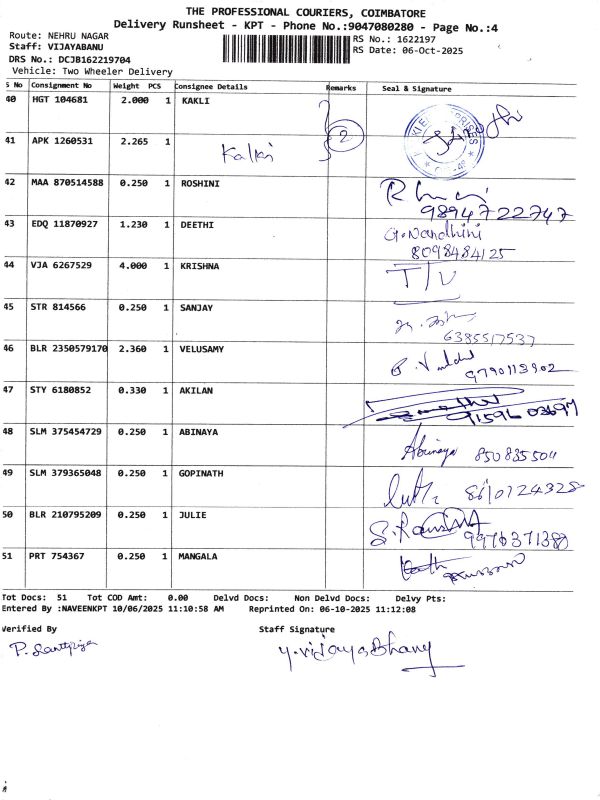 THE PROFESSIONAL COURIERS, COIMBATORE
Delivery Runsheet - KPT - Phone No.:9047080280 - Page No.:4
Route: NEHRU NAGAR RS No.: 1622197
Staff: VIJAYABANU RS Date: 06-Oct-2025
DRS No.: DCJB162219704
Vehicle: Two Wheeler Delivery
S No Consignment No Weight PCS Consignee Details Remarks Seal & Signature
40 HGT 104681 2.000 1 KAKLI
2
41 APK 1260531 2.265 1
Kalki
42 MAA 870514588 0.250 1 ROSHINI
9894722747
43 EDQ 11870927 1.230 1 DEETHI G.Nandhini
8098484125
44 VJA 6267529 4.000 1 KRISHNA T/V
45 STR 814566 0.250 1 SANJAY
6385517537
46 BLR 2350579170 2.360 1 VELUSAMY
9790113902
47 STY 6180852 0.330 1 AKILAN
48 SLM 375454729 0.250 1 ABINAYA Abinaya 850835504
49 SLM 379365048 0.250 1 GOPINATH 8610124328
50 BLR 210795209 0.250 1 JULIE 9976371388
51 PRT 754367 0.250 1 MANGALA
Tot Docs: 51 Tot COD Amt: 0.00 Delvd Docs: Non Delvd Docs: Delvy Pts:
Entered By :NAVEENKPT 10/06/2025 11:10:58 AM Reprinted On: 06-10-2025 11:12:08
Verified By Staff Signature